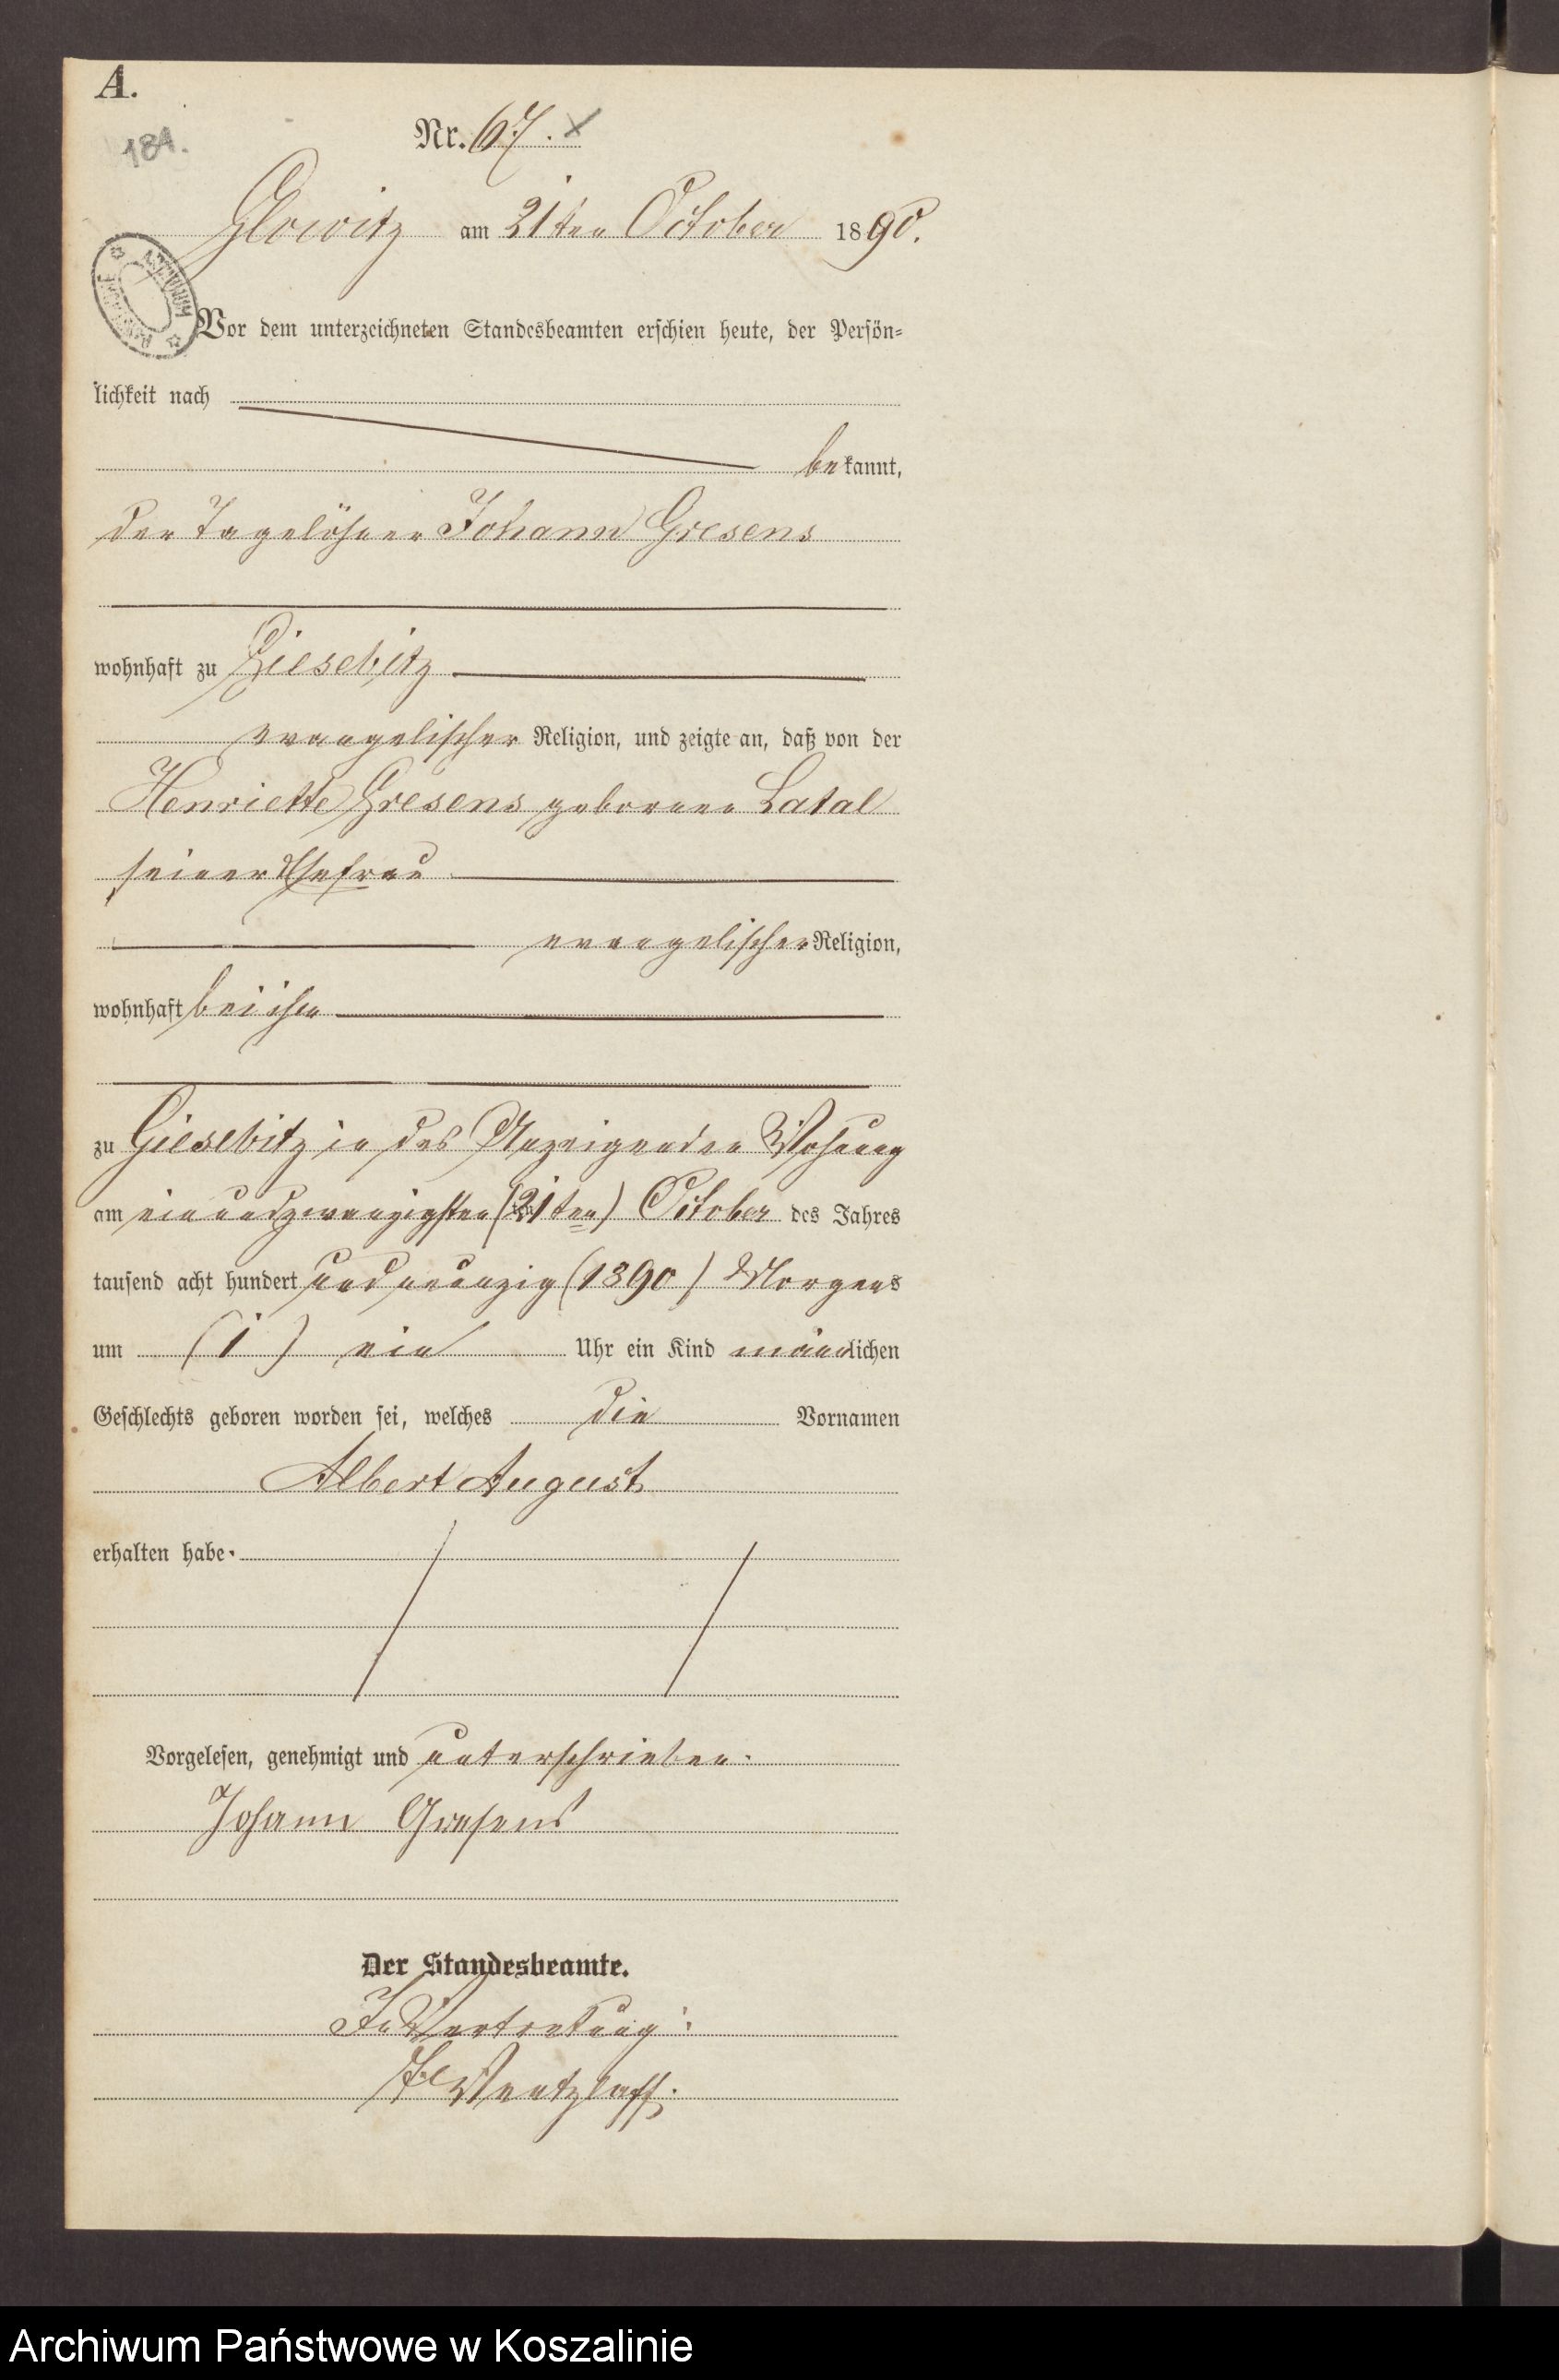 A.
184.
Nr. 67.
Glowitz am 21ten October 1890.
Vor dem unterzeichneten Standesbeamten erschien heute, der Persön-
lichkeit nach
bekannt,
der Tagelöhner Johann Gresens
wohnhaft zu Giesebitz
evangelischer Religion, und zeigte an, daß von der
Henriette Gresens geborenen Latal
seiner Ehefrau
evangelischer Religion,
wohnhaft bei ihm
zu Giesebitz in des Anzeigenden Wohnung
am einundzwanzigsten (21ten) October des Jahres
tausend acht hundert und neunzig (1890) Morgens
um (1) ein Uhr ein Kind männlichen
Geschlechts geboren worden sei, welches die Vornamen
Albert August
erhalten habe.
Vorgelesen, genehmigt und unterschrieben.
Johann Gresens
Der Standesbeamte.
In Vertretung:
Wentzlaff.
Archiwum Państwowe w Koszalinie